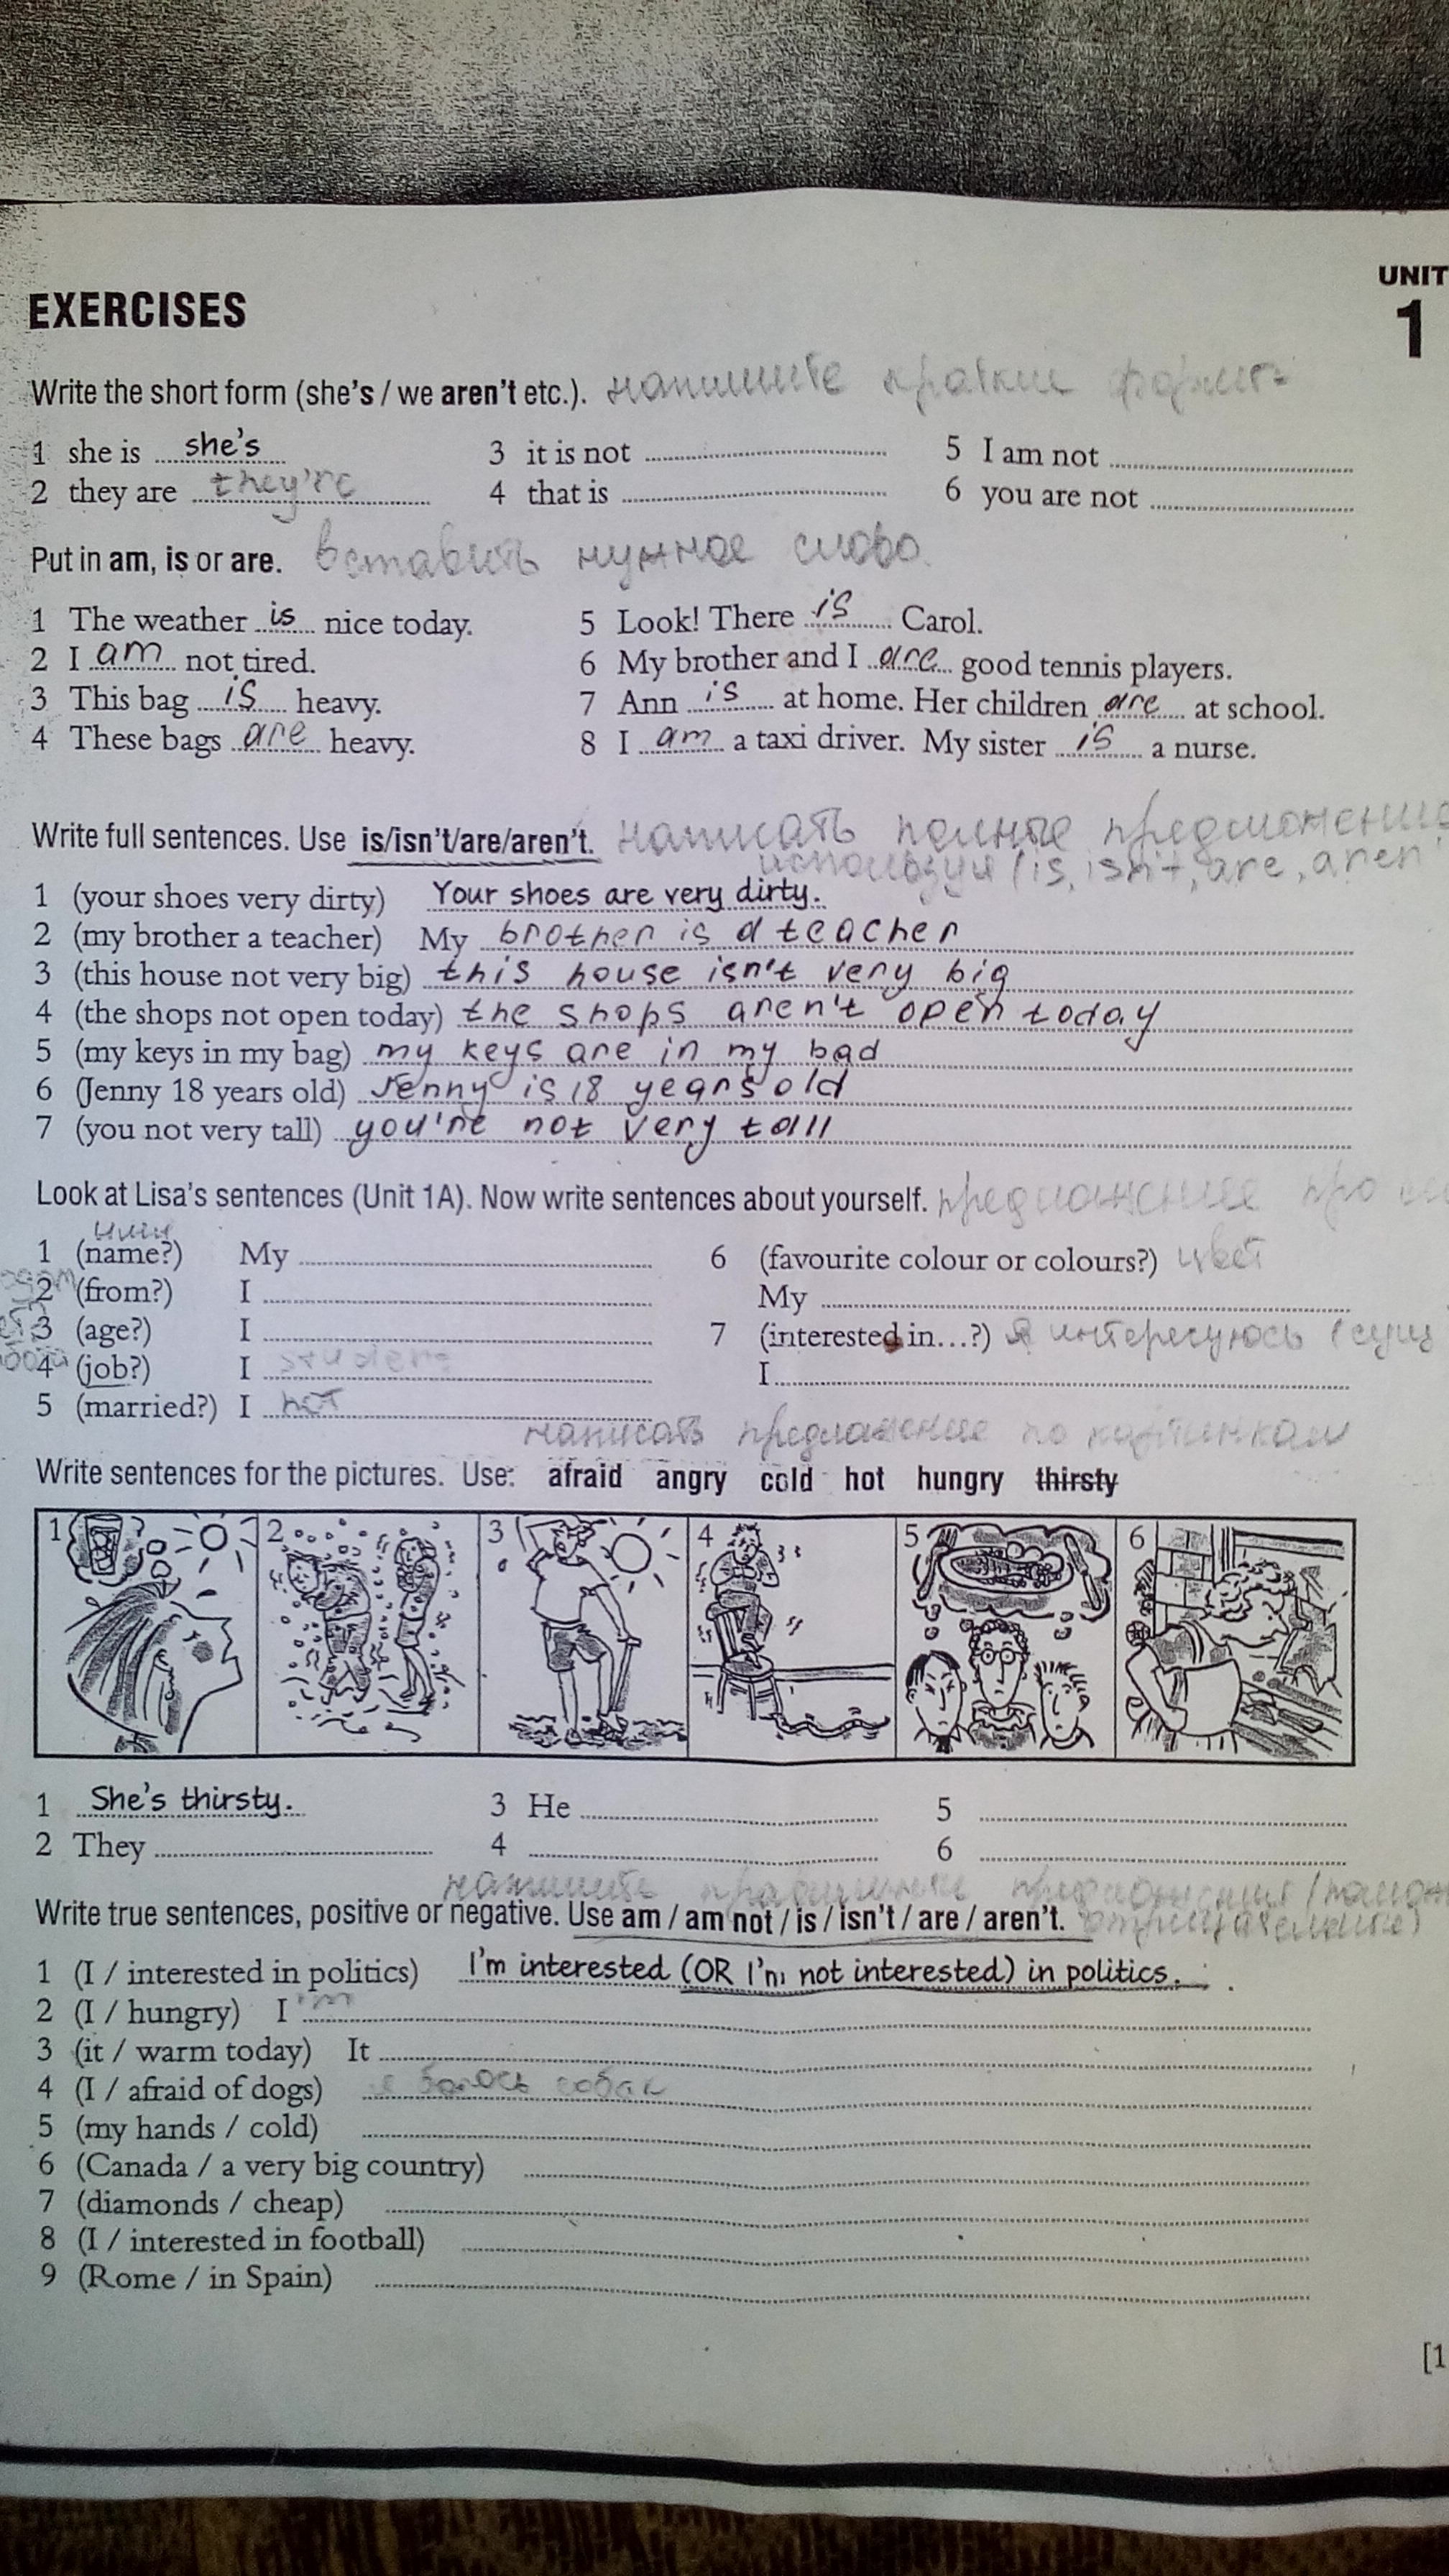 UNIT
1
EXERCISES
Write the short form (she's / we aren't etc.). напишите краткие формы
1 she is she's 3 it is not 5 I am not
2 they are they're 4 that is 6 you are not
Put in am, is or are. вставить нужное слово.
1 The weather is nice today. 5 Look! There is Carol.
2 I am not tired. 6 My brother and I are good tennis players.
3 This bag is heavy. 7 Ann is at home. Her children are at school.
4 These bags are heavy. 8 I am a taxi driver. My sister is a nurse.
Write full sentences. Use is/isn't/are/aren't. написать полные
используя (is, isn't, are, aren'
1 (your shoes very dirty) Your shoes are very dirty.
2 (my brother a teacher) My brother is a teacher
3 (this house not very big) this house isn't very big
4 (the shops not open today) the shops aren't open today
5 (my keys in my bag) my keys are in my bad
6 (Jenny 18 years old) Jenny is 18 years old
7 (you not very tall) you're not very tall
Look at Lisa's sentences (Unit 1A). Now write sentences about yourself. про
1 (name?) My 6 (favourite colour or colours?) цвет
2 (from?) I My
3 (age?) I 7 (interested in...?) я интересуюсь
4 (job?) I student I
5 (married?) I not
написать предложение по картинкам
Write sentences for the pictures. Use: afraid angry cold hot hungry thirsty
1 2 3 4 5 6
1 She's thirsty. 3 He 5
2 They 4 6
напишите
Write true sentences, positive or negative. Use am / am not / is / isn't / are / aren't.
1 (I / interested in politics) I'm interested (OR I'm not interested) in politics.
2 (I / hungry) I 'm
3 (it / warm today) It
4 (I / afraid of dogs) я боюсь собак
5 (my hands / cold)
6 (Canada / a very big country)
7 (diamonds / cheap)
8 (I / interested in football)
9 (Rome / in Spain)
[1